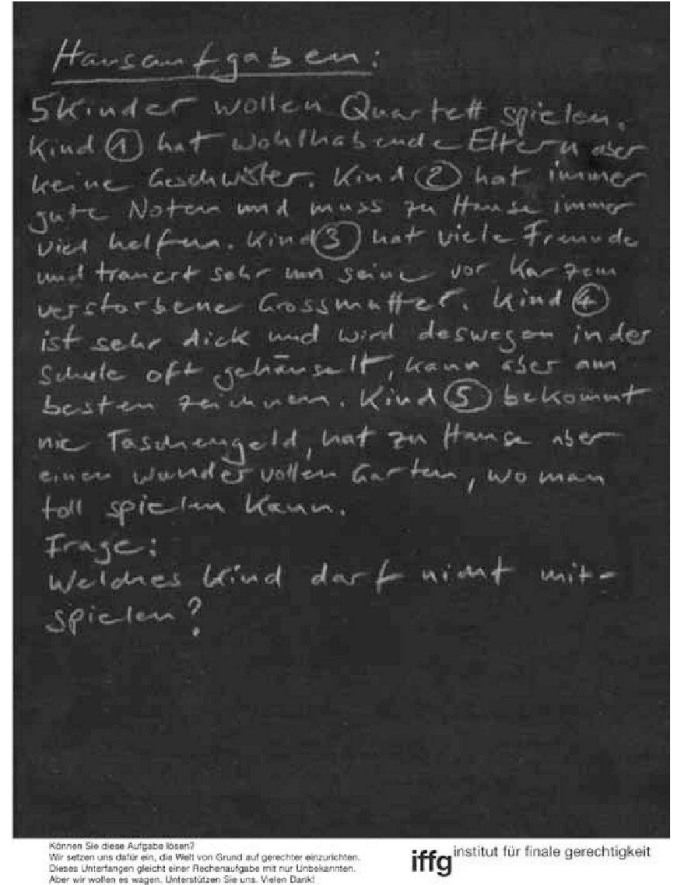 Hausaufgaben:
5 Kinder wollen Quartett spielen.
Kind ① hat wohlhabende Eltern aber
keine Geschwister. Kind ② hat immer
gute Noten und muss zu Hause immer
viel helfen. Kind ③ hat viele Freunde
und trauert sehr um seine vor kurzem
verstorbene Grossmutter. Kind ④
ist sehr dick und wird deswegen in der
Schule oft gehänselt, kann aber am
besten zeichnen. Kind ⑤ bekommt
nie Taschengeld, hat zu Hause aber
einen wundervollen Garten, wo man
toll spielen kann.
Frage:
Welches Kind darf nicht mit-
spielen?
Können Sie diese Aufgabe lösen?
Wir setzen uns dafür ein, die Welt von Grund auf gerechter einzurichten.
Dieses Unterfangen gleicht einer Rechenaufgabe mit nur Unbekannten.
Aber wir wollen es wagen. Unterstützen Sie uns. Vielen Dank!
iffg institut für finale gerechtigkeit